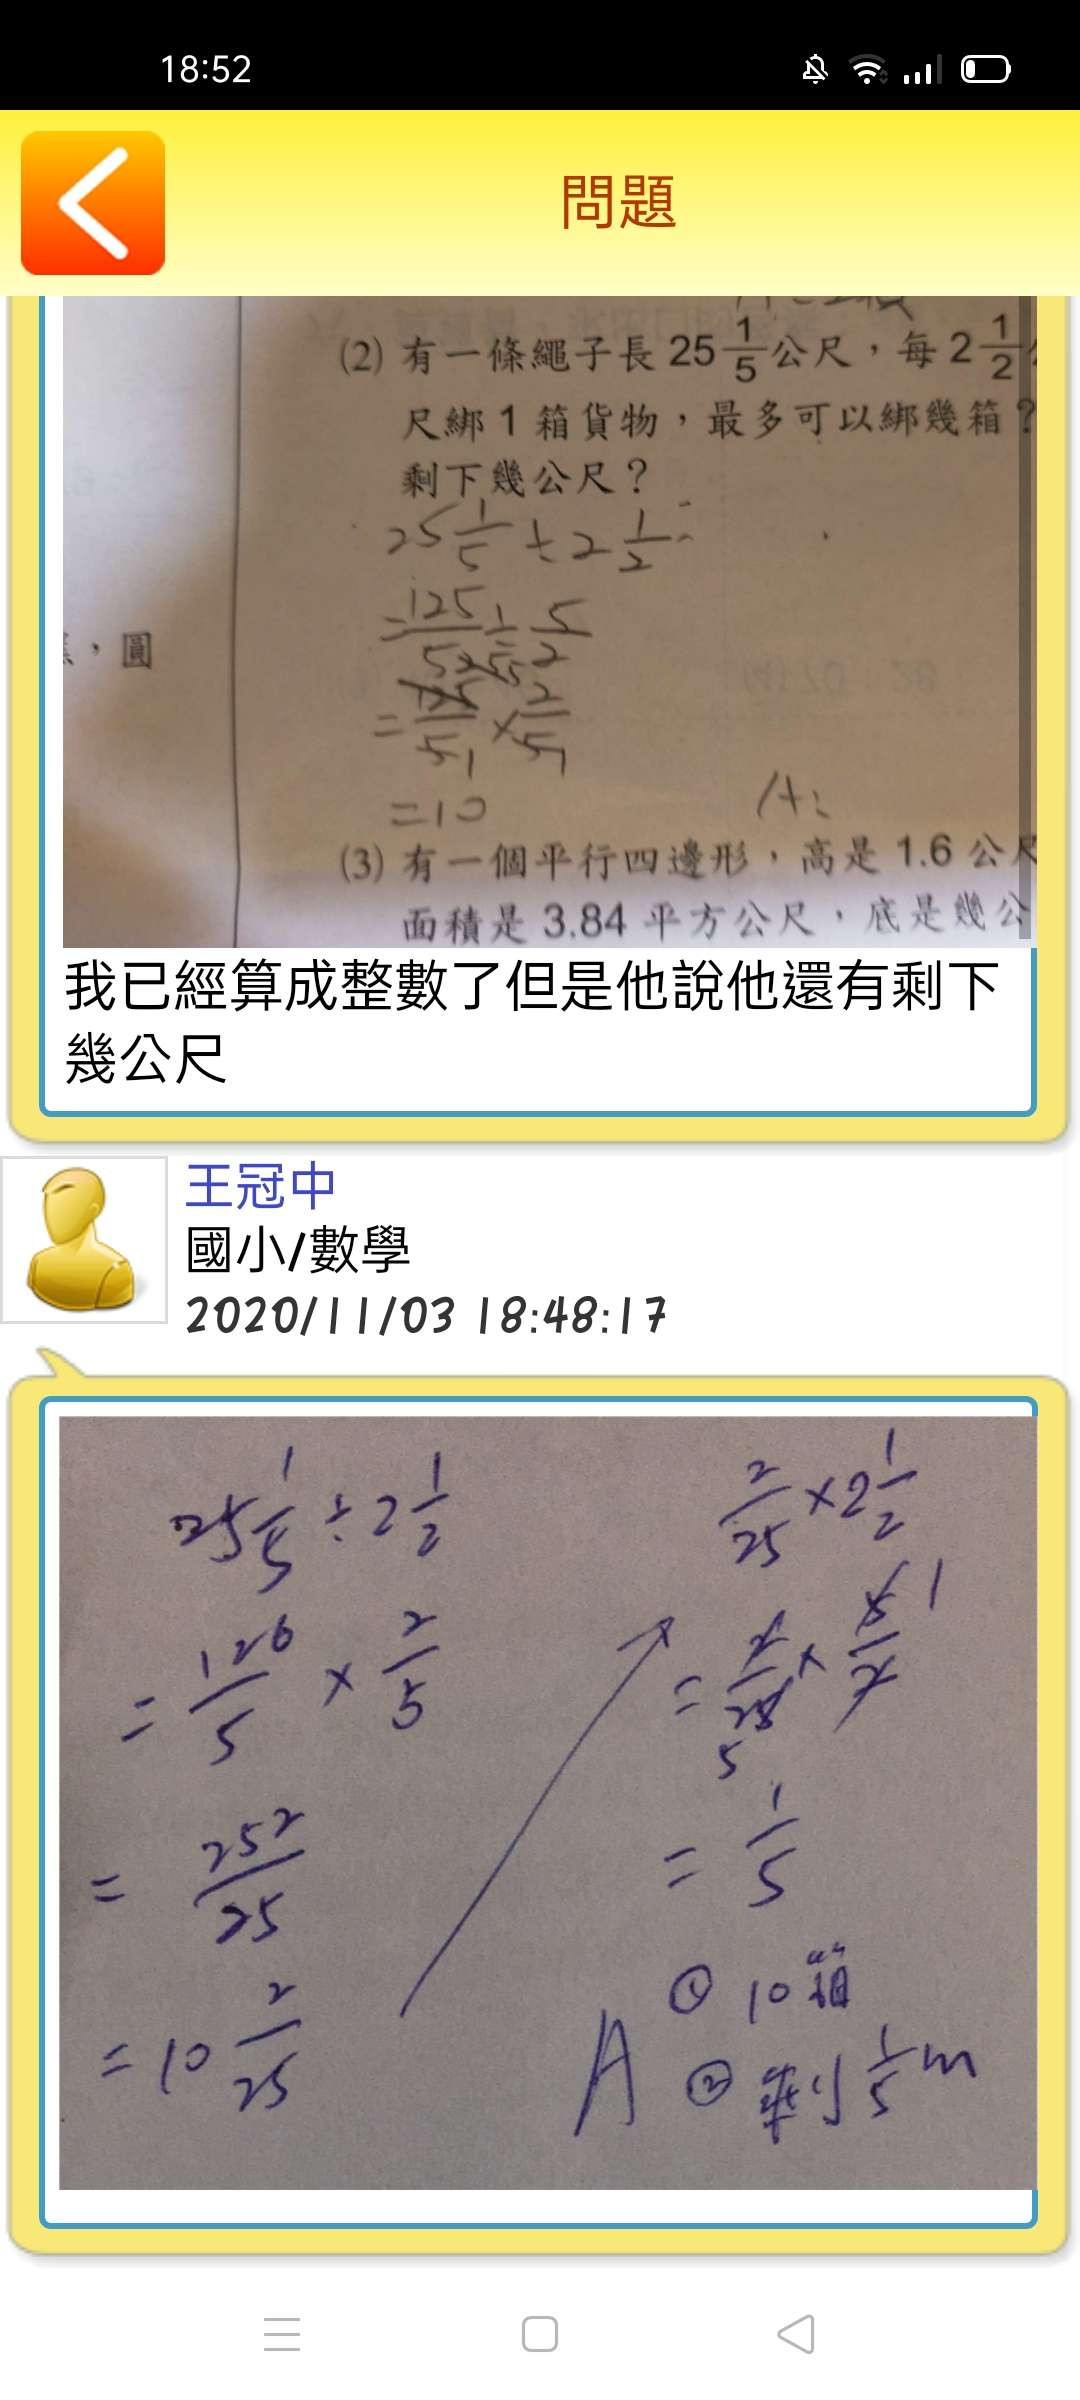 18:52
問題
(2) 有一條繩子長 25 1/5 公尺，每 2 1/2
尺綁 1 箱貨物，最多可以綁幾箱？
剩下幾公尺？
25 1/5 ÷ 2 1/2
= 125/5 ÷ 5/2
，圓
= 125/5 × 2/5
25 5
1 1
= 10
A:
(3) 有一個平行四邊形，高是 1.6 公尺
面積是 3.84 平方公尺，底是幾公
我已經算成整數了但是他說他還有剩下
幾公尺
王冠中
國小/數學
2020/11/03 18:48:17
25 1/5 ÷ 2 1/2
= 126/5 × 2/5
= 252/25
= 10 2/25
2/25 × 2 1/2
= 2/25 × 5/2
5 1
= 1/5
A ① 10箱
② 剩 1/5 m